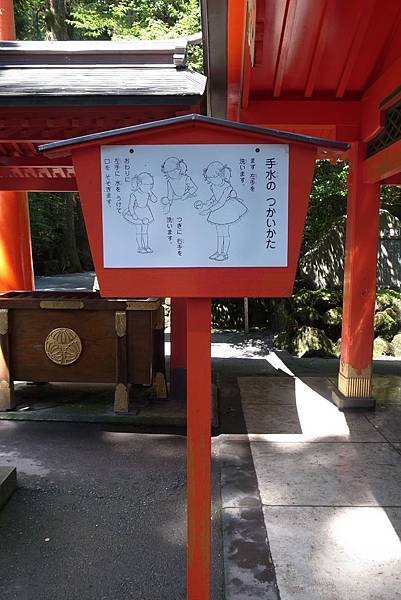 手水の つかいかた
まず 左手を
洗います。
つぎに 右手を
洗います。
おわりに
左手に 水を うけて
口を そそぎます。